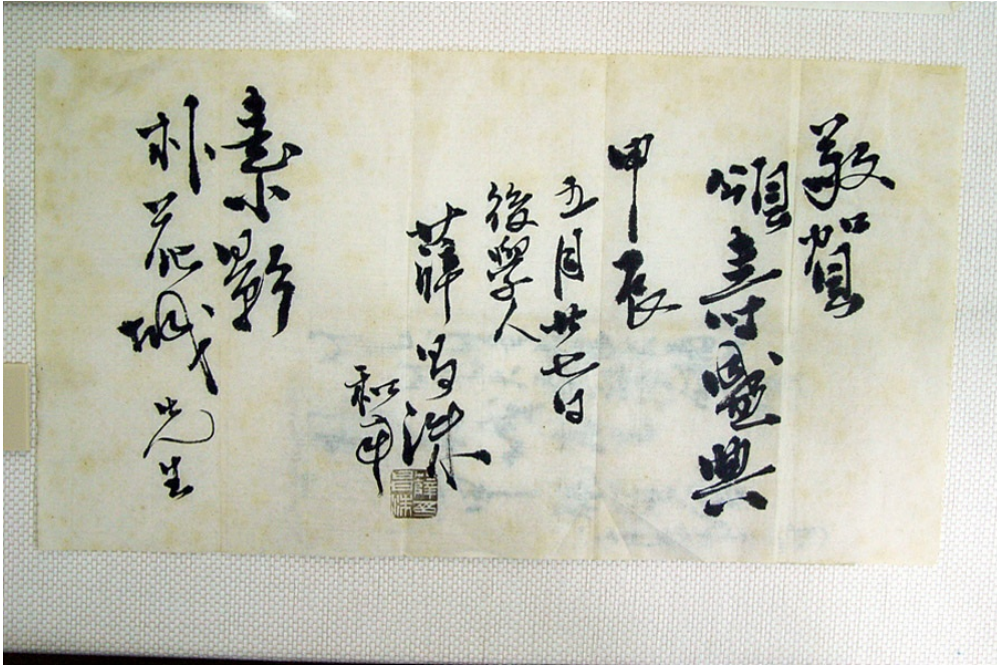 敬賀
頌壽盛典
甲辰
五月廿七日
後學人
薛昌洙
和南
素影
朴花城先生
薛昌洙